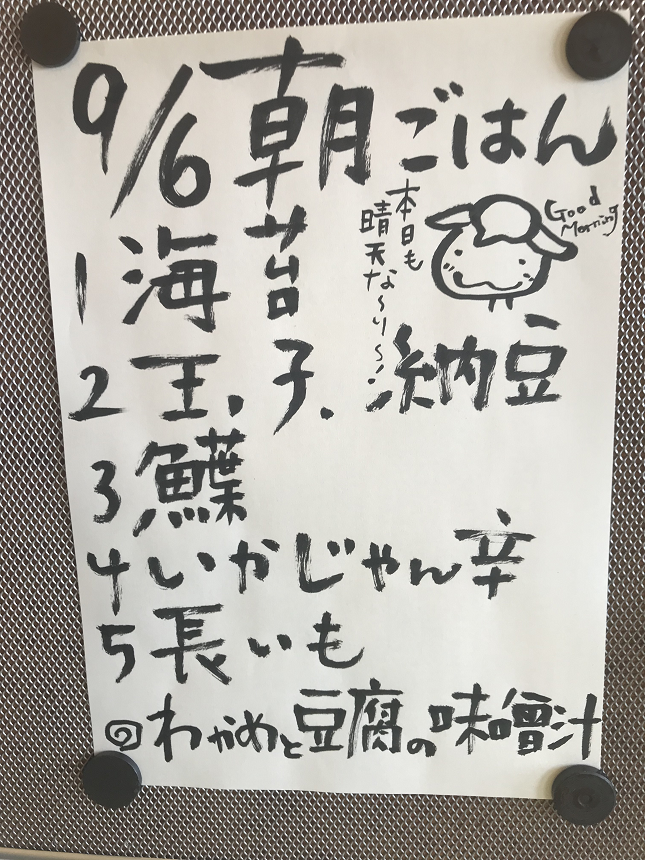 9/6 朝ごはん
本日も
晴天な〜り〜!
Good
Morning
1 海苔
2 玉子. 納豆
3 鰈
4 いかじゃん辛
5 長いも
◎わかめと豆腐の味噌汁